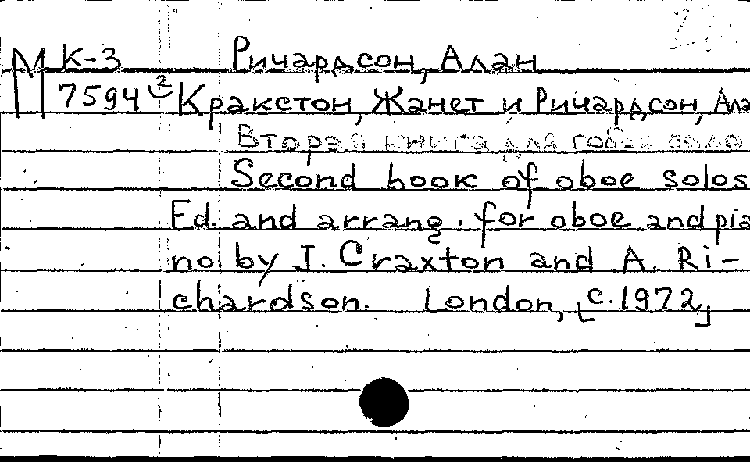 М К-3 Ричардсон, Алан
7594² Кракстон, Жанет и Ричардсон, Ала
Вторая книга для гобоя соло
Second book of oboe solos
Ed. and arrang. for oboe and pia
no by J. Craxton and A. Ri-
chardson. London, [c. 1972]